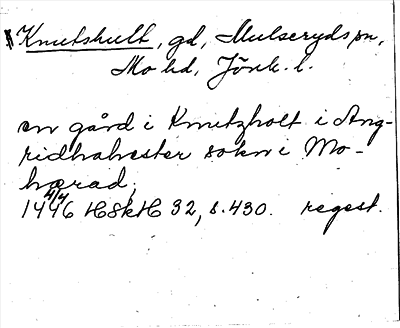 Knutshult, gd, Mulseryds sn,
Mo hd, Jönk. l.
en gård i Knutzholt i Ang-
ridhahester sokn i Mo-
hærad,
1446 4/4 HSkH 32, s. 430. regest.